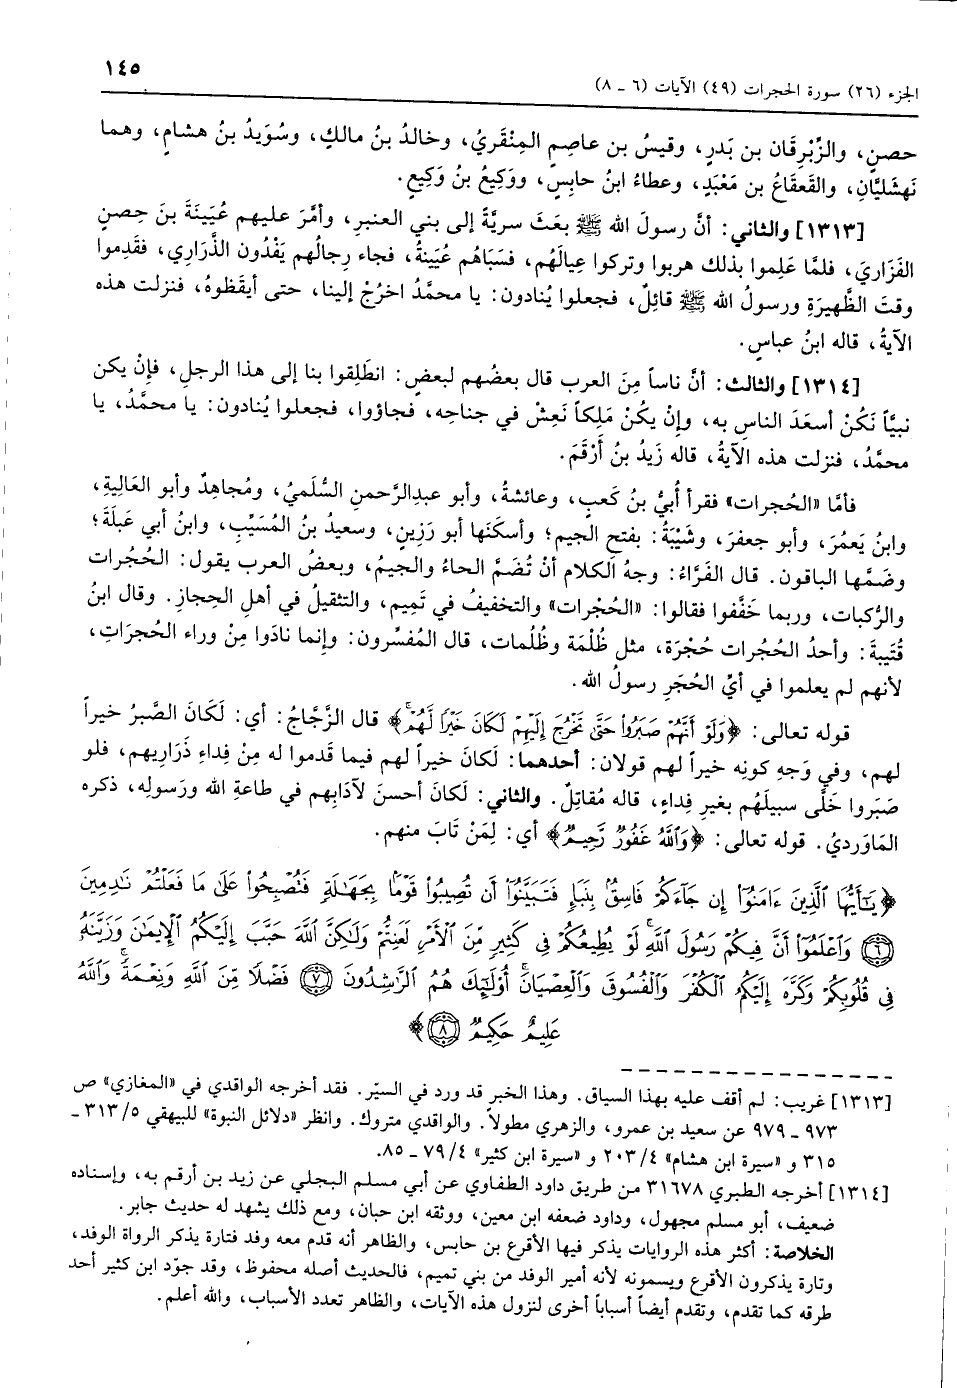 الجزء (٢٦) سورة الحجرات (٤٩) الآيات (٦ ـ ٨)
١٤٥
حصنٍ، والزِّبْرِقَان بن بَدرٍ، وقيسُ بن عاصِمٍ المِنْقَريُ، وخالدُ بنُ مالكٍ، وسُوَيدُ بنُ هشامٍ، وهما
نَهشليَّانِ، والقَعقَاعُ بن مَعْبَدٍ، وعطاءُ ابنُ حابِسٍ، ووَكِيعُ بنُ وَكِيعٍ.
[١٣١٣] والثاني: أنَّ رسولَ الله ﷺ بعَثَ سريَّةً إلى بني العنبرِ، وأمَّرَ عليهم عُيَينَةَ بنَ حِصنٍ
الفَزَاريَ، فلمَّا عَلِموا بذلك هربوا وتركوا عِيالَهُم، فسَبَاهُم عُيَينةُ، فجاء رِجالُهم يَفْدُون الذَّرَاري، فقَدِموا
وقتَ الظَّهيرَةِ ورسولُ الله ﷺ قائِلٌ، فجعلوا يُنادون: يا محمَّدُ اخرُجْ إلينا، حتى أيقَظوهُ، فنزلت هذه
الآيةُ، قاله ابنُ عباسٍ.
[١٣١٤] والثالث: أنَّ ناساً مِنَ العرب قال بعضُهم لبعضٍ: انطَلِقوا بنا إلى هذا الرجلِ، فإنْ يكن
نبيَّاً نَكُنْ أسعَدَ الناسِ به، وإنْ يكُنْ مَلِكاً نَعِشْ في جناحِه، فجاؤوا، فجعلوا يُنادون: يا محمَّدُ، يا
محمَّدُ، فنزلت هذه الآيةُ، قاله زَيدُ بنُ أَرْقَمَ.
فأمَّا «الحُجرات» فقرأ أُبيُّ بنُ كَعبٍ، وعائشةُ، وأبو عبدِالرَّحمنِ السُّلَميُ، ومُجاهِدٌ وأبو العَالِيةِ،
وابنُ يَعمُرَ، وأبو جعفرَ، وشَيْبَةُ: بفتح الجيم؛ وأسكَنَها أبو رَزِينٍ، وسعيدُ بنُ المُسَيِّبِ، وابنُ أبي عَبلَةَ؛
وضَمَّها الباقون. قال الفَرَّاءُ: وجهُ الكلام أنْ تُضَمَّ الحاءُ والجيمُ، وبعضُ العرب يقول: الحُجُرات
والرُّكبات، وربما خَفَّفوا فقالوا: «الحُجْرات» والتخفيفُ في تَمِيم، والتثقيلُ في أهلِ الحِجازِ. وقال ابنُ
قُتَيبةَ: وأحدُ الحُجُرات حُجْرَة، مثل ظُلْمَة وظُلُمات، قال المُفسِّرون: وإنما نادَوا مِنْ وراء الحُجرَاتِ،
لأنهم لم يعلموا في أيِّ الحُجَرِ رسولُ الله.
قوله تعالى: ﴿وَلَوْ أَنَّهُمْ صَبَرُوا۟ حَتَّىٰ تَخْرُجَ إِلَيْهِمْ لَكَانَ خَيْرًا لَّهُمْ ۚ﴾ قال الزَّجَّاجُ: أي: لَكَانَ الصَّبرُ خيراً
لهم، وفي وَجهِ كونِه خيراً لهم قولان: أحدهما: لَكانَ خيراً لهم فيما قَدموا له مِنْ فِداءِ ذَرَارِيهم، فلو
صَبَروا خَلَّى سبيلَهُم بغيرِ فِداءٍ، قاله مُقاتِلٌ. والثاني: لَكانَ أحسنَ لآدَابِهم في طاعةِ الله ورَسولِه، ذكره
المَاوَرديُ. قوله تعالى: ﴿وَٱللَّهُ غَفُورٌ رَّحِيمٌ﴾ أي: لِمَنْ تَابَ منهم.
﴿يَـٰٓأَيُّهَا ٱلَّذِينَ ءَامَنُوٓا۟ إِن جَآءَكُمْ فَاسِقٌۢ بِنَبَإٍ فَتَبَيَّنُوٓا۟ أَن تُصِيبُوا۟ قَوْمًۢا بِجَهَـٰلَةٍ فَتُصْبِحُوا۟ عَلَىٰ مَا فَعَلْتُمْ نَـٰدِمِينَ
﴿٦﴾ وَٱعْلَمُوٓا۟ أَنَّ فِيكُمْ رَسُولَ ٱللَّهِ ۚ لَوْ يُطِيعُكُمْ فِى كَثِيرٍ مِّنَ ٱلْأَمْرِ لَعَنِتُّمْ وَلَـٰكِنَّ ٱللَّهَ حَبَّبَ إِلَيْكُمُ ٱلْإِيمَـٰنَ وَزَيَّنَهُۥ
فِى قُلُوبِكُمْ وَكَرَّهَ إِلَيْكُمُ ٱلْكُفْرَ وَٱلْفُسُوقَ وَٱلْعِصْيَانَ ۚ أُو۟لَـٰٓئِكَ هُمُ ٱلرَّٰشِدُونَ ﴿٧﴾ فَضْلًا مِّنَ ٱللَّهِ وَنِعْمَةً ۚ وَٱللَّهُ
عَلِيمٌ حَكِيمٌ ﴿٨﴾﴾
[١٣١٣] غريب: لم أقف عليه بهذا السياق. وهذا الخبر قد ورد في السيَر. فقد أخرجه الواقدي في «المغازي» ص
٩٧٣ ـ ٩٧٩ عن سعيد بن عمرو، والزهري مطولاً. والواقدي متروك. وانظر «دلائل النبوة» للبيهقي ٣١٣/٥ ـ
٣١٥ و «سيرة ابن هشام» ٢٠٣/٤ و «سيرة ابن كثير» ٧٩/٤ ـ ٨٥.
[١٣١٤] أخرجه الطبري ٣١٦٧٨ من طريق داود الطفاوي عن أبي مسلم البجلي عن زيد بن أرقم به، وإسناده
ضعيف، أبو مسلم مجهول، وداود ضعفه ابن معين، ووثقه ابن حبان، ومع ذلك يشهد له حديث جابر.
الخلاصة: أكثر هذه الروايات يذكر فيها الأقرع بن حابس، والظاهر أنه قدم معه وفد فتارة يذكر الرواة الوفد،
وتارة يذكرون الأقرع ويسمونه لأنه أمير الوفد من بني تميم، فالحديث أصله محفوظ، وقد جوّد ابن كثير أحد
طرقه كما تقدم، وتقدم أيضاً أسباباً أخرى لنزول هذه الآيات، والظاهر تعدد الأسباب، والله أعلم.